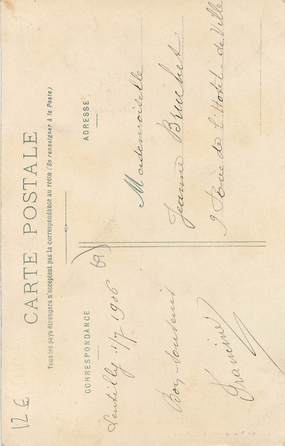 CARTE POSTALE
Tous les pays étrangers n'acceptent pas la correspondance au recto (Se renseigner à la Poste)
CORRESPONDANCE
ADRESSE
Lentilly 11/7 1906
Bon Souvenir
(69)
Mademoiselle
Jeanne Bruchet
9 de l'Hotel-de-Ville
12 E